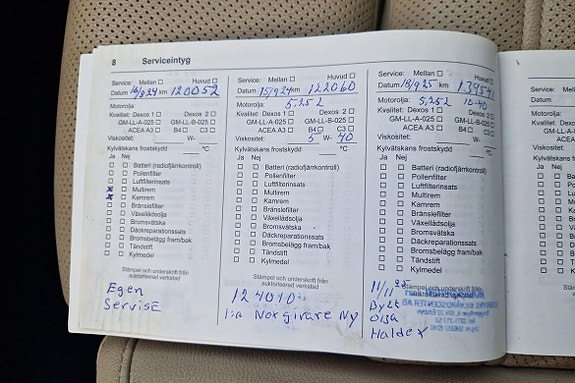 8 Serviceintyg
Service: Mellan ☐ Huvud ☐
Datum 16/8 24 km 120052
Motorolja:
Kvalitet: Dexos 1 ☐ Dexos 2 ☐
GM-LL-A-025 ☐ GM-LL-B-025 ☐
ACEA A3 ☐ B4 ☐ C3 ☐
Viskositet: W-
Kylvätskans frostskydd °C
Ja Nej
☐ ☐ Batteri (radiofjärrkontroll)
☐ ☐ Pollenfilter
☐ ☐ Luftfilterinsats
x ☐ Multirem
x ☐ Kamrem
☐ ☐ Bränslefilter
☐ ☐ Växellådsolja
☐ ☐ Bromsvätska
☐ ☐ Däckreparationssats
☐ ☐ Bromsbelägg fram/bak
☐ ☐ Tändstift
☐ ☐ Kylmedel
Stämpel och underskrift från
auktoriserad verkstad
Egen
ServisE
Service: Mellan ☐ Huvud ☐
Datum 15/9 24 km 122060
Motorolja: 5,25 L
Kvalitet: Dexos 1 ☐ Dexos 2 ☐
GM-LL-A-025 ☐ GM-LL-B-025 ☐
ACEA A3 ☐ B4 ☐ C3 ☐
Viskositet: 5 W- 40
Kylvätskans frostskydd °C
Ja Nej
☐ ☐ Batteri (radiofjärrkontroll)
☐ ☐ Pollenfilter
☐ ☐ Luftfilterinsats
☐ ☐ Multirem
☐ ☐ Kamrem
☐ ☐ Bränslefilter
☐ ☐ Växellådsolja
☐ ☐ Bromsvätska
☐ ☐ Däckreparationssats
☐ ☐ Bromsbelägg fram/bak
☐ ☐ Tändstift
☐ ☐ Kylmedel
Stämpel och underskrift från
auktoriserad verkstad
124010
Nockgivare Ny
Service: Mellan ☐ Huvud ☐
Datum 18/9 25 km
Motorolja: 5,25 L 10-40
Kvalitet: Dexos 1 ☐ Dexos 2 ☐
GM-LL-A-025 ☐ GM-LL-B-025 ☐
ACEA A3 ☐ B4 ☐ C3 ☐
Viskositet: W-
Kylvätskans frostskydd °C
Ja Nej
☐ ☐ Batteri (radiofjärrkontroll)
☐ ☐ Pollenfilter
☐ ☐ Luftfilterinsats
☐ ☐ Multirem
☐ ☐ Kamrem
☐ ☐ Bränslefilter
☐ ☐ Växellådsolja
☐ ☐ Bromsvätska
☐ ☐ Däckreparationssats
☐ ☐ Bromsbelägg fram/bak
☐ ☐ Tändstift
☐ ☐ Kylmedel
Stämpel och underskrift från
auktoriserad verkstad
11/11 25
Bytt
Olja
Haldex
Service: Mellan
Datum
Motorolja:
Kvalitet: Dexos
GM-LL-A-
ACEA
Viskositet:
Kylvätskans fros
Ja Nej